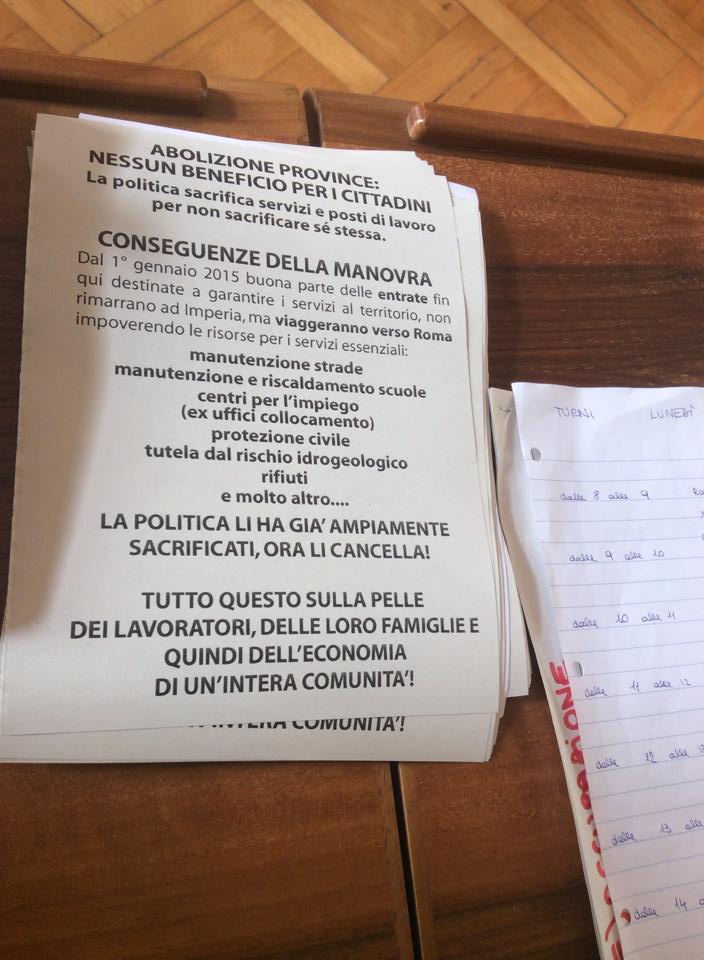 ABOLIZIONE PROVINCE:
NESSUN BENEFICIO PER I CITTADINI
La politica sacrifica servizi e posti di lavoro
per non sacrificare sé stessa.
CONSEGUENZE DELLA MANOVRA
Dal 1° gennaio 2015 buona parte delle entrate fin
qui destinate a garantire i servizi al territorio, non
rimarrano ad Imperia, ma viaggeranno verso Roma
impoverendo le risorse per i servizi essenziali:
manutenzione strade
manutenzione e riscaldamento scuole
centri per l'impiego
(ex uffici collocamento)
protezione civile
tutela dal rischio idrogeologico
rifiuti
e molto altro....
LA POLITICA LI HA GIA' AMPIAMENTE
SACRIFICATI, ORA LI CANCELLA!
TUTTO QUESTO SULLA PELLE
DEI LAVORATORI, DELLE LORO FAMIGLIE E
QUINDI DELL'ECONOMIA
DI UN'INTERA COMUNITA'!
INTERA COMUNITA'!
TURNI LUNEDÌ
dalle 8 alle 9
dalle 9 alle 10
dalle 10 alle 11
dalle 11 alle 12
dalle 12 alle
dalle 13 alle
dalle 14